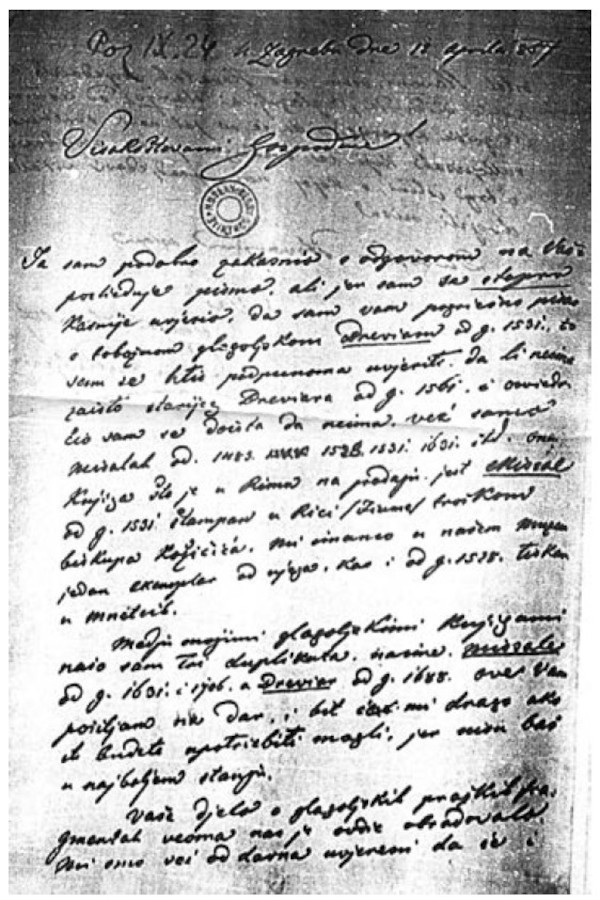 Poz IX. 24 u Zagrebu dne 18 Aprila 857
Visokoštovani Gospodine!
Ja sam podalno zakasnio s odgovorom na Vaše
posliednje pismo, ali jer sam se stoprv
kasnije uvjerio, da sam vam pogriešno pisao
o tobožnom glagoljskom Breviaru od g. 1531., to
sam se htio podpunoma uvjeriti, da li neima
zaista starijeg Breviara od g. 1561. i osviedo-
čio sam se doista da neima, već samo
Missalah od. 1483. 1528. 1531. 1631. itd. ona
knjiga što je u Rimu na prodaju jest Missal
od g. 1531 štampan u Rici /Fiume/ troškom
biskupa Kožičića. Mi imamo u našem muzeu
jedan exemplar od njega, kao i od g. 1528. tiskan
u Mnetcih.
Medju mojimi glagoljskimi knjigami
našo sam tri duplikata, naime, Missale
od g. 1631. i 1706. a Breviar od g. 1688. ove Vam
posiljam na dar, i bit će mi drago ako
ih budete upotriebiti mogli, jer nisu baš
u najboljem stanju.
Vaše djelo o glagoljskih pražkih fra-
gmentah veoma nas je ovdie obradovalo
Mi smo već od davna uvjereni da se i